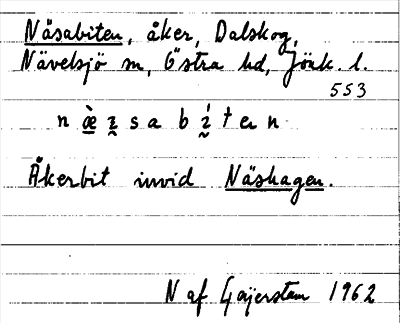 Näsabiten, åker, Dalskog,
Nävelsjö sn, Östra hd, Jönk. l.
553
n æ̀ ɪ s a b ɪ́ t e n
Åkerbit invid Näshagen.
N af Gajerstam 1962